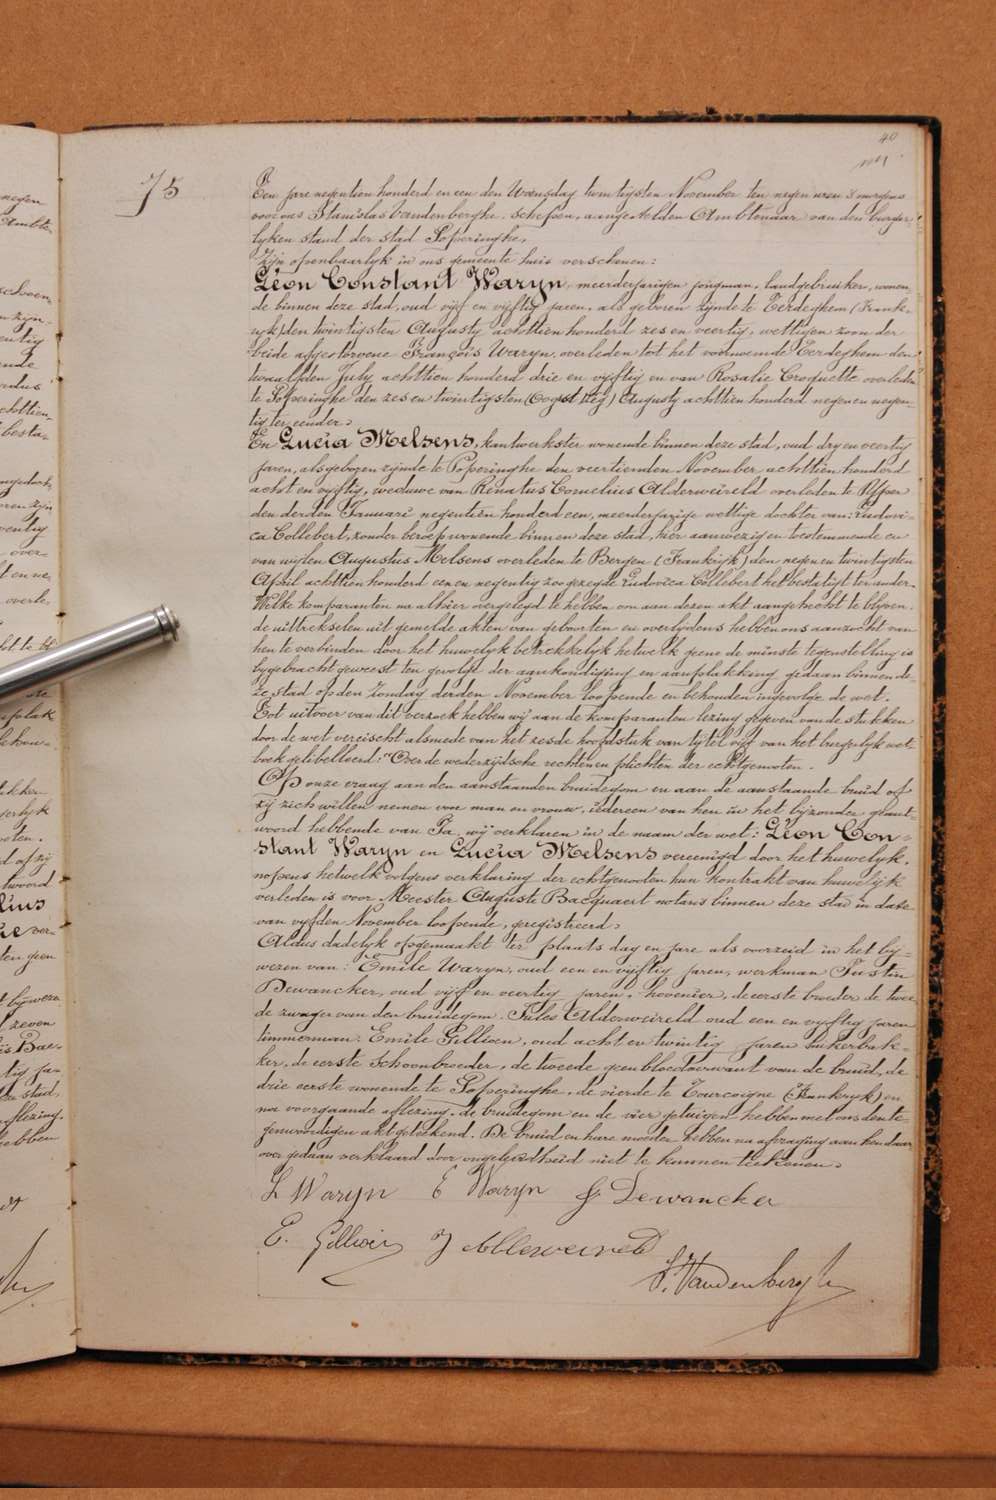 40
75
Een jare negentien honderd en een den Woensdag twintigsten November ten negen uren 's morgens
voor ons Stanislas Vandenberghe, Schepen, aangestelden Ambtenaar van den burger-
lyken stand der stad Poperinghe,
Zijn openbaarlyk in ons gemeente huis verschenen:
Léon Constant Waryn, meerderjarigen jongman, landgebruiker, wonen-
de binnen deze stad, oud vijf en vijftig jaren, als geboren zijnde te Eerdeghem (Frank-
ryk) den twintigsten Augusty achttien honderd zes en veertig, wettigen zoon der
beide afgestorvene François Waryn, overleden tot het voornoemde Eerdeghem den
twaalfden July achttien honderd drie en vyftig en van Rosalie Croquette overleden
te Poperinghe den zes en twintigsten (Oogst Zeg) Augusty achttien honderd negen en negen-
tig ter eender,
En Lucia Melsens, kantwerkster wonende binnen deze stad, oud dry en veertig
jaren, als geboren zijnde te Poperinghe den veertienden November achttien honderd
acht en vyftig, weduwe van Renatus Cornelius Alderweireld overleden te Ypper
den derden Januari negentien honderd een, meerderjarige wettige dochter van: Ludovi-
ca Collebert, zonder beroep wonende binnen deze stad, hier aanwezig en toestemmende en
van wijlen Augustus Melsens overleden te Bergen (Frankrijk) den negen en twintigsten
April achttien honderd een en negentig zoo gezegde Ludovica Collebert het bestatigt ter ander.
Welke komparanten na alhier overgelegd te hebben om aan dezen akt aangehecht te blyven.
de uittrekselen uit gemelde akten van geboorten en overlydens hebben ons aanzocht van
hen te verbinden door het huwelyk betrekkelyk hetwelk geene de minste tegenstelling is
bygebracht geweest ten gevolge der aankondiging en aanplakking gedaan binnen de-
ze stad op den Zondag derden November loopende en behouden ingevolge de wet.
Tot uitvoer van dit verzoek hebben wij aan de komparanten lezing gegeven van de stukken
door de wet vereischt alsmede van het zesde hoofdstuk van tytel vijf van het burgerlyk wet-
boek gelibelleerd: "Over de wederzijdsche rechten en plichten der echtgenooten.
Op onze vraag aan den aanstaanden bruidegom en aan de aanstaande bruid of
zij zich willen nemen voor man en vrouw, iedereen van hen in het byzonder geant-
woord hebbende van Ja, wij verklaren in de naam der wet: Léon Con-
stant Waryn en Lucia Melsens vereenigd door het huwelyk,
nopens hetwelk volgens verklaring der echtgenooten hun kontrakt van huwelyk
verleden is voor Meester Auguste Bacquaert notaris binnen deze stad in date
van vyfden November loopende, geregistreerd,
Aldus dadelyk opgemaakt ter plaats dag en jare als voorzeid in het by-
wezen van: Emile Waryn, oud een en vijftig jaren, werkman Justin
Dewancker, oud vijf en veertig jaren, hovenier, de eerste broeder de twee-
de zwager van den bruidegom. Jules Alderweireld oud een en vyftig jaren
timmerman. Emile Gillioen, oud acht en twintig jaren suikerbak-
ker, de eerste schoonbroeder, de tweede geen bloedverwant van de bruid, de
drie eerste wonende te Poperinghe, de vierde te Tourcoigne (Frankryk) en
na voorgaande aflezing, de bruidegom en de vier getuigen hebben met ons den te-
genwoordigen akt geteekend. De bruid en hare moeder hebben na afvraging aan hen daar
over gedaan verklaard door ongeleerdheid niet te kunnen teekenen,
L Waryn E Waryn J Dewancker
E. Gillioen J Allerweireld
S. Vandenberghe